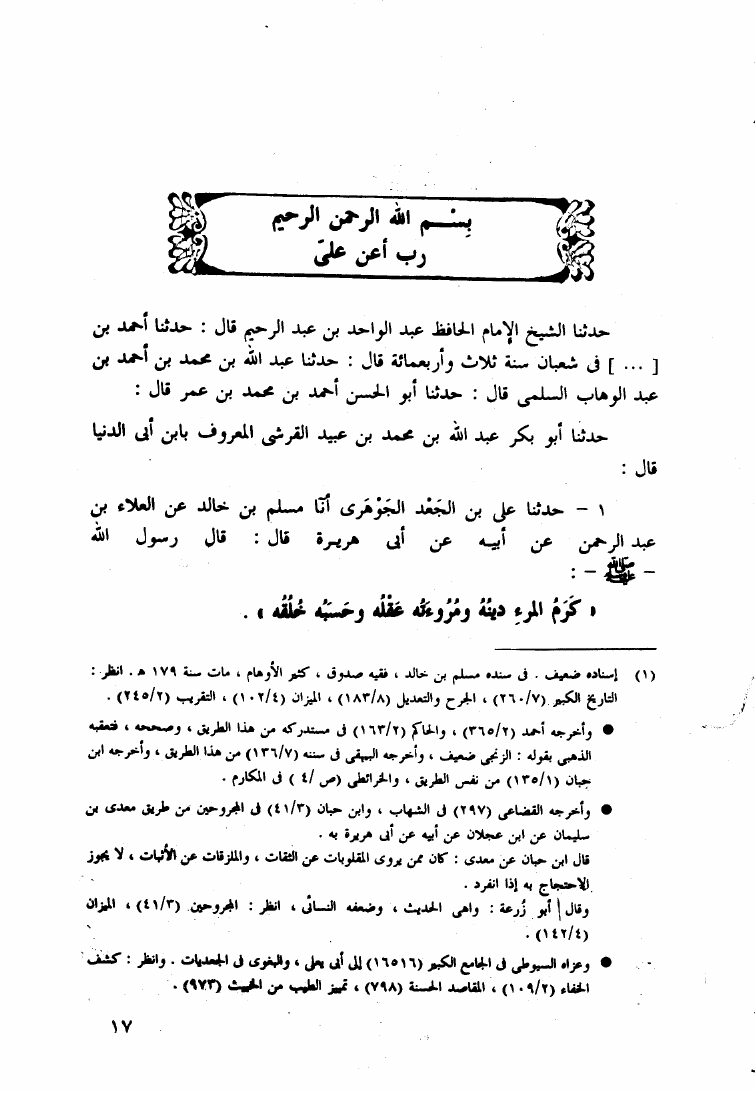 بِسْـــم الله الرحمن الرحيم
رب أعن علىّ
حدثنا الشيخ الإمام الحافظ عبد الواحد بن عبد الرحيم قال : حدثنا أحمد بن
[ ... ] فى شعبان سنة ثلاث وأربعمائة قال : حدثنا عبد الله بن محمد بن أحمد بن
عبد الوهاب السلمى قال : حدثنا أبو الحسن أحمد بن محمد بن عمر قال :
حدثنا أبو بكر عبد الله بن محمد بن عبيد القرشى المعروف بابن أبى الدنيا
قال :
١ - حدثنا على بن الجَعْد الجَوْهَرى أنّا مسلم بن خالد عن العلاء بن
عبد الرحمن عن أبيه عن أبى هريرة قال : قال رسول الله
- ﷺ - :
« كَرَمُ المرءِ دينُهُ ومُرُوءَتُه عَقْلُه وحَسَبُه خُلُقُه » .
(١) إسناده ضعيف . فى سنده مسلم بن خالد ، فقيه صدوق ، كثير الأوهام ، مات سنة ١٧٩ هـ . انظر :
التاريخ الكبير (٢٦٠/٧) ، الجرح والتعديل (١٨٣/٨) ، الميزان (١٠٢/٤) ، التقريب (٢٤٥/٢) .
● وأخرجه أحمد (٣٦٥/٢) ، والحاكم (١٦٣/٢) فى مستدركه من هذا الطريق ، وصححه ، فتعقبه
الذهبى بقوله : الزنجى ضعيف ، وأخرجه البيهقى فى سننه (١٣٦/٧) من هذا الطريق ، وأخرجه ابن
حبان (١٣٥/١) من نفس الطريق ، والخرائطى (ص /٤ ) فى المكارم .
● وأخرجه القضاعى (٢٩٧) فى الشهاب ، وابن حبان (٤١/٣) فى المجروحين من طريق معدى بن
سليمان عن ابن عجلان عن أبيه عن أبى هريرة به .
قال ابن حبان عن معدى : كان ممن يروى المقلوبات عن الثقات ، والملزقات عن الأثبات ، لا يجوز
الاحتجاج به إذا انفرد .
وقال أبو زُرعة : واهى الحديث ، وضعفه النسائى ، انظر : المجروحين (٤١/٣) ، الميزان
(١٤٢/٤) .
● وعزاه السيوطى فى الجامع الكبير (١٦٥١٦) إلى أبى يعلى ، والبغوى فى الجعديات . وانظر : كشف
الخفاء (١٠٩/٢) ، المقاصد الحسنة (٧٩٨) ، تمييز الطيب من الخبيث (٩٧٣) .
١٧